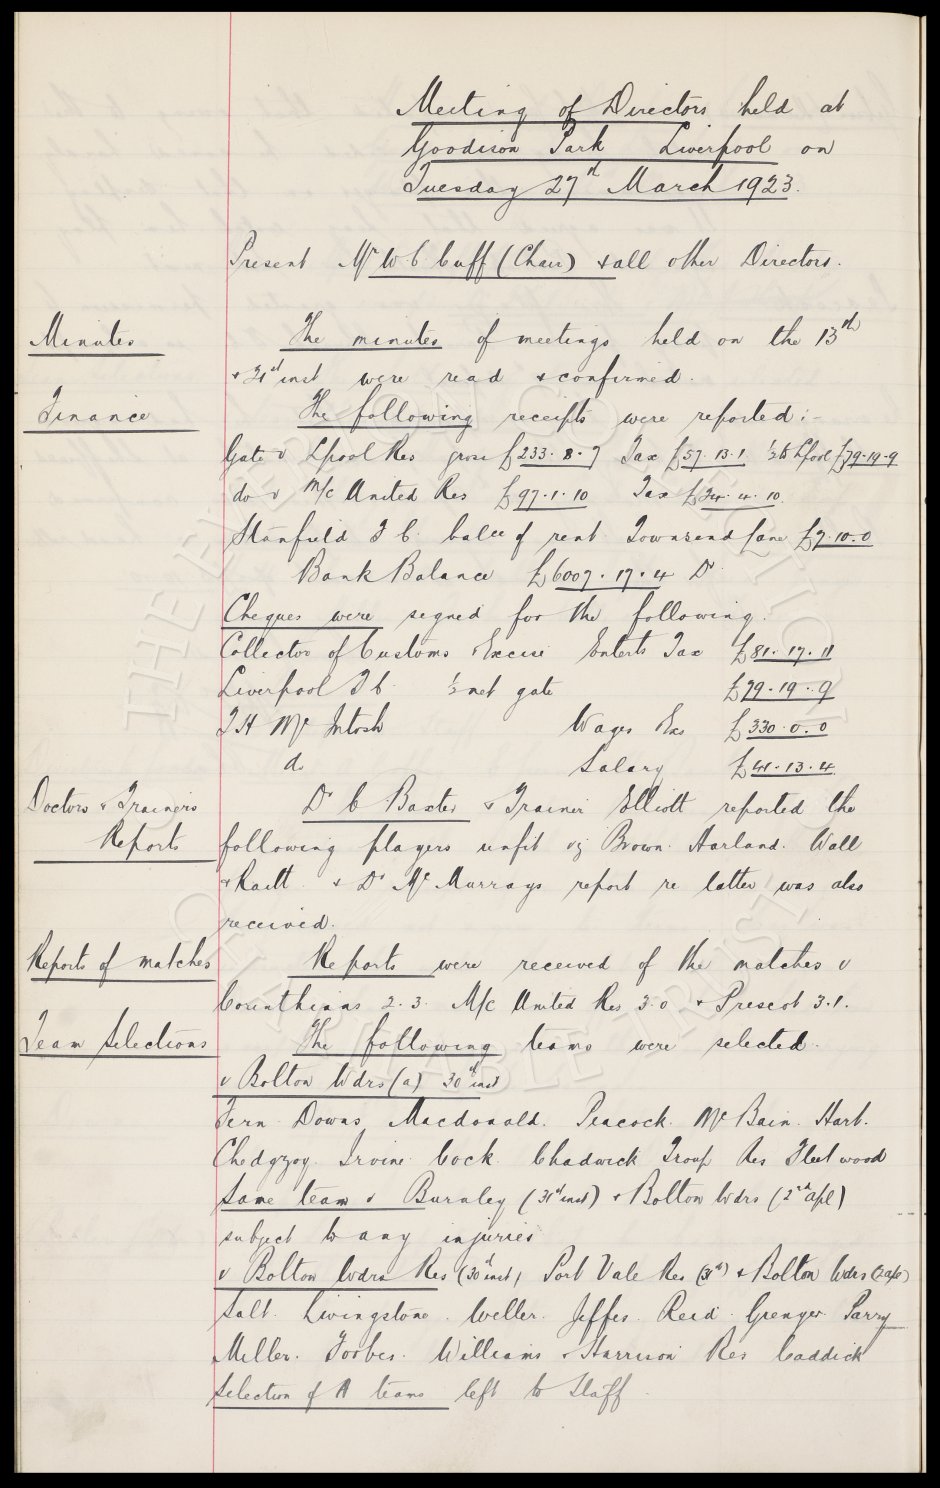 Meeting of Directors held at
Goodison Park Liverpool on
Tuesday 27th March 1923.
Present Mr W C Cuff (Chair) & all other Directors.
Minutes The minutes of meetings held on the 13th
& 21st inst were read & confirmed.
Finance The following receipts were reported :-
Gate v Lpool Res gross £233.8.7 Tax £57.13.1 ½ to Lpool £79.19.9
do v M/c United Res £97.1.10 Tax £24.4.10
Stanfield F C balce of rent Townsend Lane £7.10.0
Bank Balance £6007.17.4 Dr
Cheques were signed for the following.
Collector of Customs & Excise Enterts Tax £81.17.11
Liverpool F C ½ net gate £79.19.9
T H Mc Intosh Wages Exs £330.0.0
do Salary £41.13.4
Doctors & Trainers Dr C Baxter & Trainer Elliott reported the
Reports following players unfit viz Brown. Harland. Wall
& Raitt. & Dr Mc Murrays report re latter was also
received.
Reports of matches Reports were received of the matches v
Corinthians 2.3. M/c United Res 3.0 & Prescot 3.1.
Team Selections The following teams were selected.
v Bolton Wdrs (a) 30th inst
Fern. Downs Macdonald. Peacock. Mc Bain. Hart.
Chedgzoy. Irvine. Cock. Chadwick Troup Res Fleetwood
Same team v Burnley (31st inst) & Bolton Wdrs (2nd apl)
subject to any injuries
v Bolton Wdrs Res (30th inst) Port Vale Res (31st) & Bolton Wdrs (2 apl)
Salt. Livingstone. Weller. Jeffes. Reid. Grenyer Parry
Miller. Forbes. Williams & Harrison Res Caddick
Selection of A teams left to Staff.
THE EVERTON COLLECTION
CHARITABLE TRUST